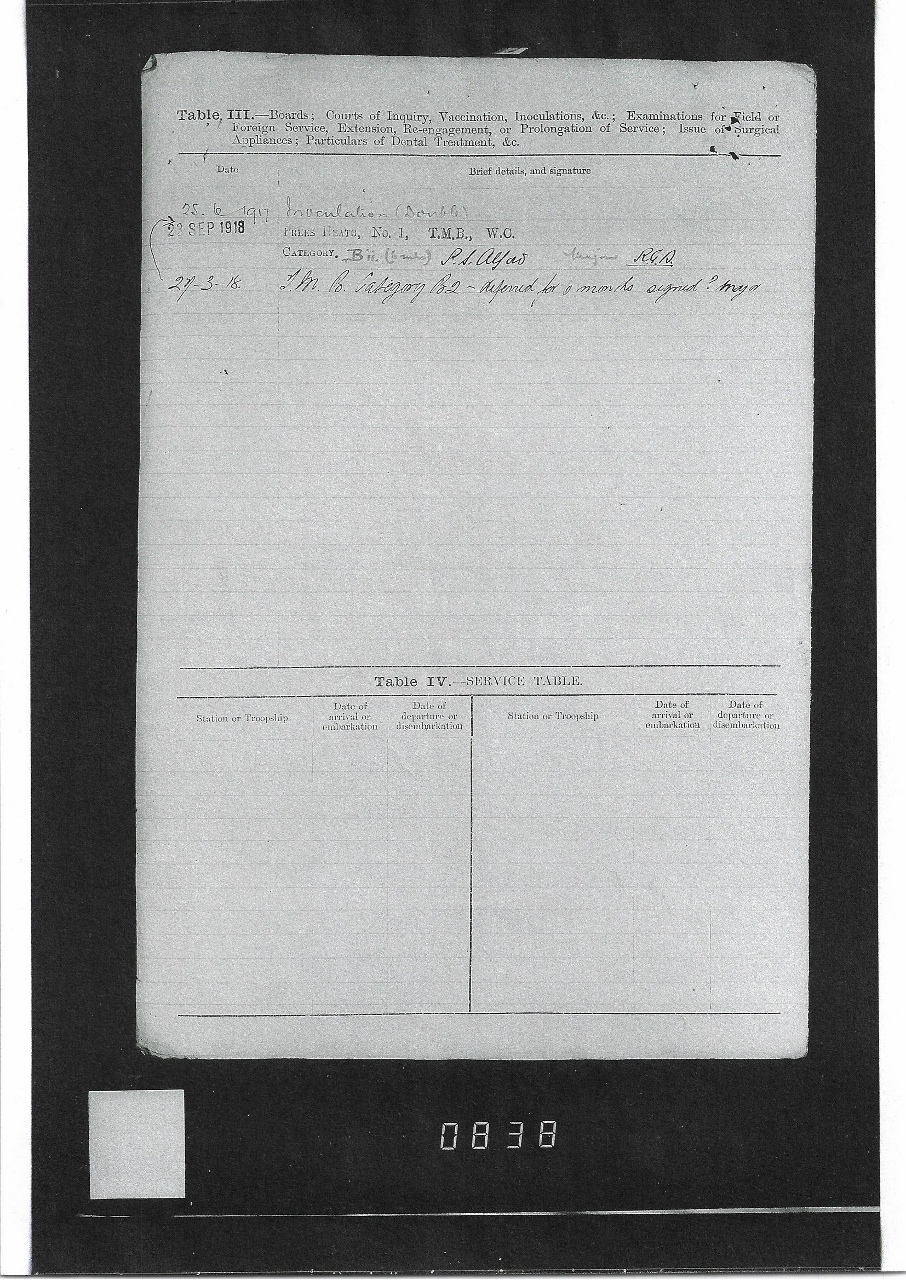 Table III.—Boards; Courts of Inquiry, Vaccination, Inoculations, &c.; Examinations for Field or
Foreign Service, Extension, Re-engagement, or Prolongation of Service; Issue of Surgical
Appliances; Particulars of Dental Treatment, &c.
Date
Brief details, and signature
25. 6 1917 Inoculation (Double)
23 SEP 1918 PREES HEATH, No. 1, T.M.B., W.C.
CATEGORY. Bii. Major
27-3-18 T.M.B. Category B2 - deferred for 6 months signed ? Major
Table IV.—SERVICE TABLE.
Station or Troopship
Date of
arrival or
embarkation
Date of
departure or
disembarkation
Station or Troopship
Date of
arrival or
embarkation
Date of
departure or
disembarkation
0838